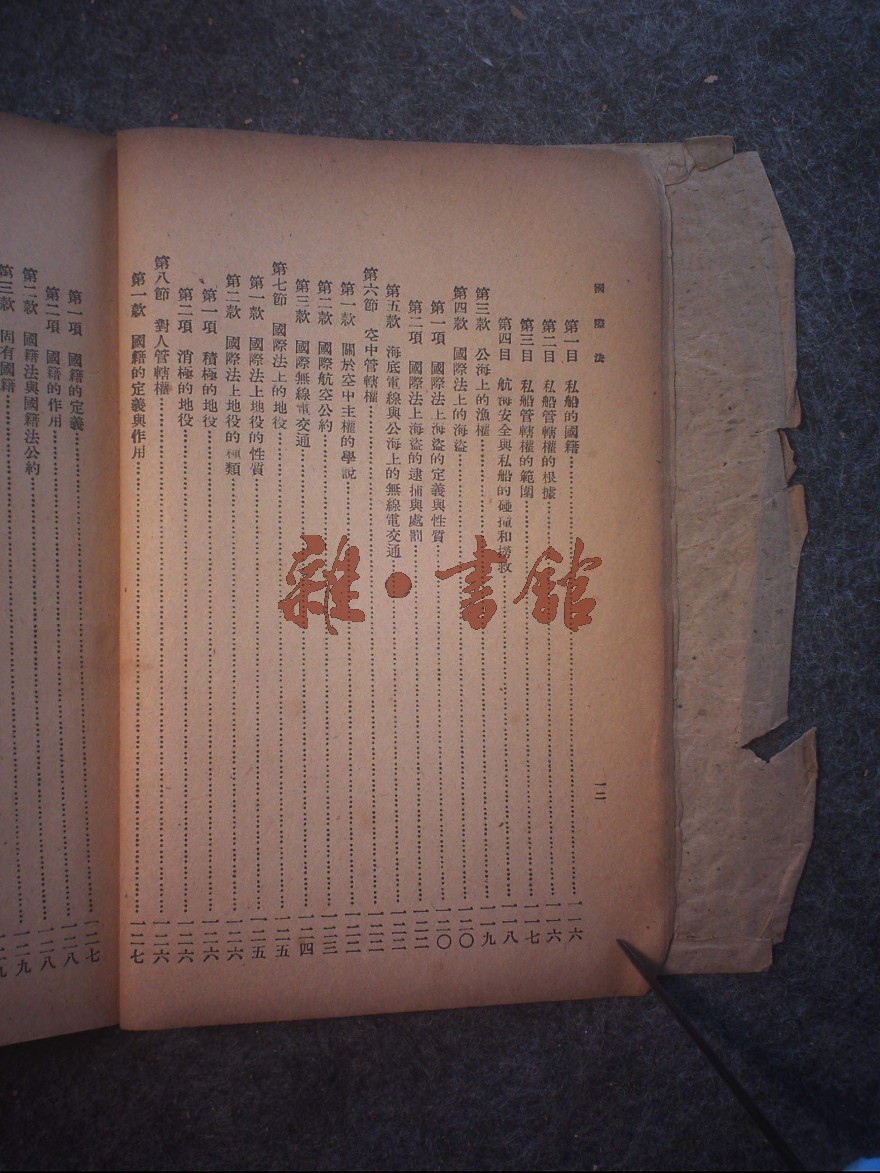 國際法 一二
第一目 私船的國籍……一一六
第二目 私船管轄權的根據……一一六
第三目 私船管轄權的範圍……一一七
第四目 航海安全與私船的碰撞和撈救……一一八
第三款 公海上的漁權……一一九
第四款 國際法上的海盜……一二〇
第一項 國際法上海盜的定義與性質……一二〇
第二項 國際法上海盜的逮捕與處罰……一二二
第五款 海底電線與公海上的無線電交通……一二二
第六節 空中管轄權……一二二
第一款 關於空中主權的學說……一二二
第二款 國際航空公約……一二三
第三款 國際無線電交通……一二四
第七節 國際法上的地役……一二五
第一款 國際法上地役的性質……一二五
第二款 國際法上地役的種類……一二六
第一項 積極的地役……一二六
第二項 消極的地役……一二六
第八節 對人管轄權……一二六
第一款 國籍的定義與作用……一二七
第一項 國籍的定義……一二七
第二項 國籍的作用……一二八
第二款 國籍法與國籍法公約……一二八
第三款 固有國籍……一二九
雜·書館